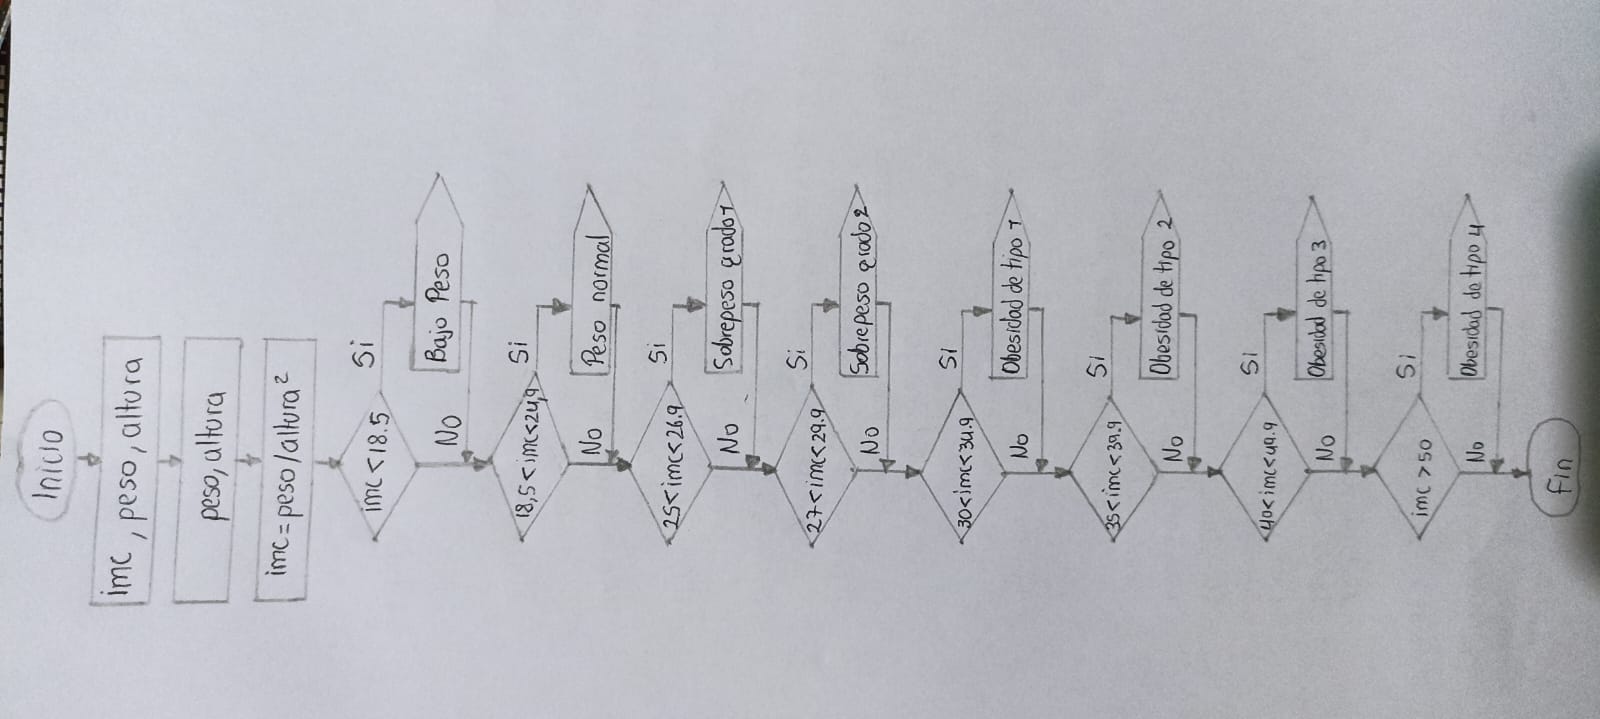 Inicio
imc, peso, altura
peso, altura
imc = peso/altura²
imc < 18.5
Si
Bajo Peso
No
18,5 < imc < 24,9
Si
Peso normal
No
25 < imc < 26.9
Si
Sobrepeso grado 1
No
27 < imc < 29.9
Si
Sobrepeso grado 2
No
30 < imc < 34.9
Si
Obesidad de tipo 1
No
35 < imc < 39.9
Si
Obesidad de tipo 2
No
40 < imc < 49.9
Si
Obesidad de tipo 3
No
imc > 50
Si
Obesidad de tipo 4
No
Fin